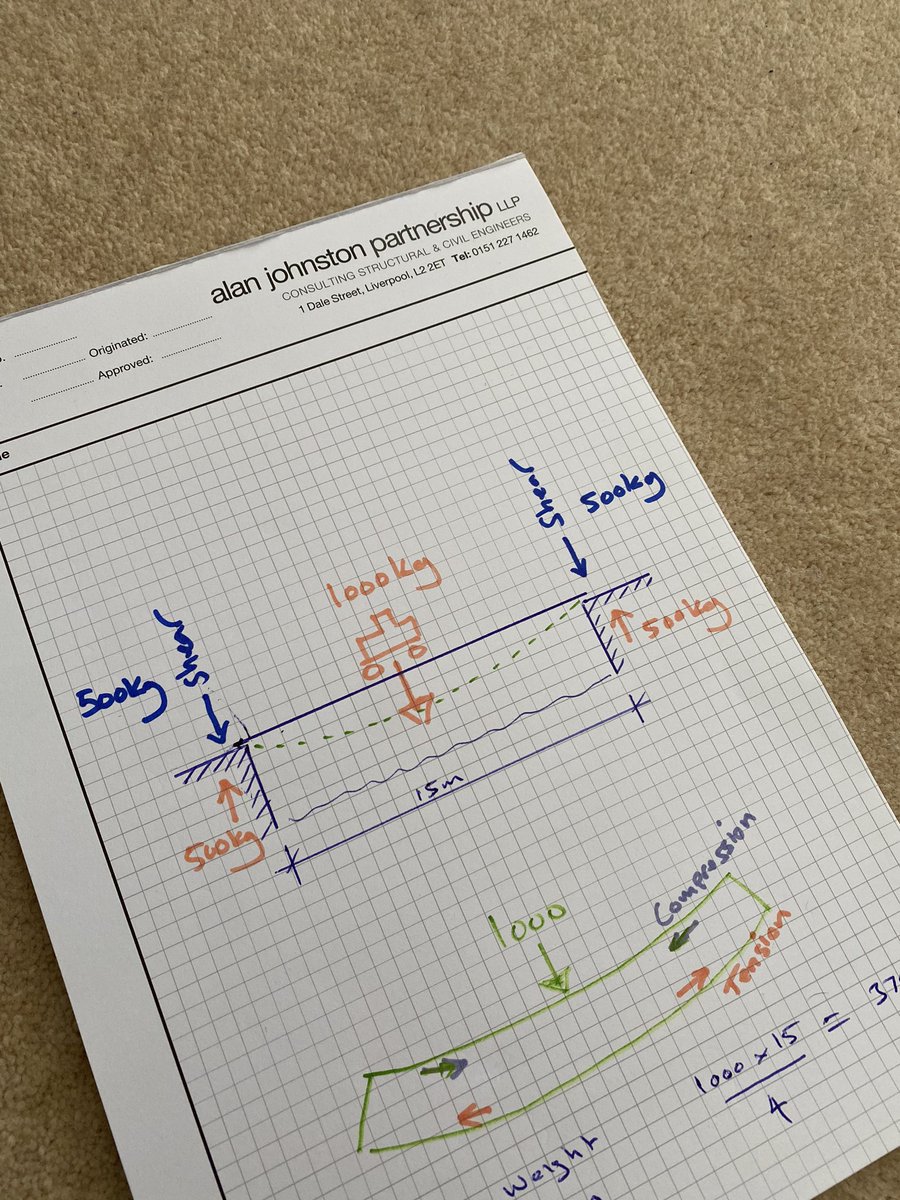 alan johnston partnership LLP
CONSULTING STRUCTURAL & CIVIL ENGINEERS
1 Dale Street, Liverpool, L2 2ET Tel: 0151 227 1462
Originated:
Approved:
Shear 500kg
1000kg
500kg Shear
500kg
500kg
15m
Compression
1000
Tension
1000 x 15 =
4
Weight